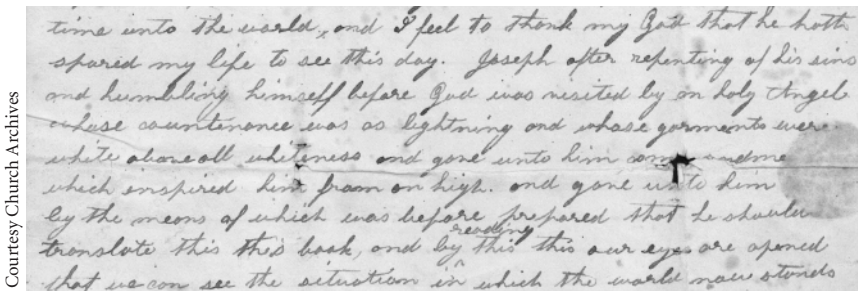 Courtesy Church Archives
time unto the world, and I feel to thank my God that he hath
spared my life to see this day. Joseph after repenting of his sins
and humbling himself before God was visited by an holy Angel
whose countenance was as lightning and whose garments were
white above all whiteness and gave unto him
which inspired him from on high. and gave unto him
by the means of which was before prepared that he should
reading
translate this this book, and by this this our eyes are opened
that we can see the situation in which the world now stands